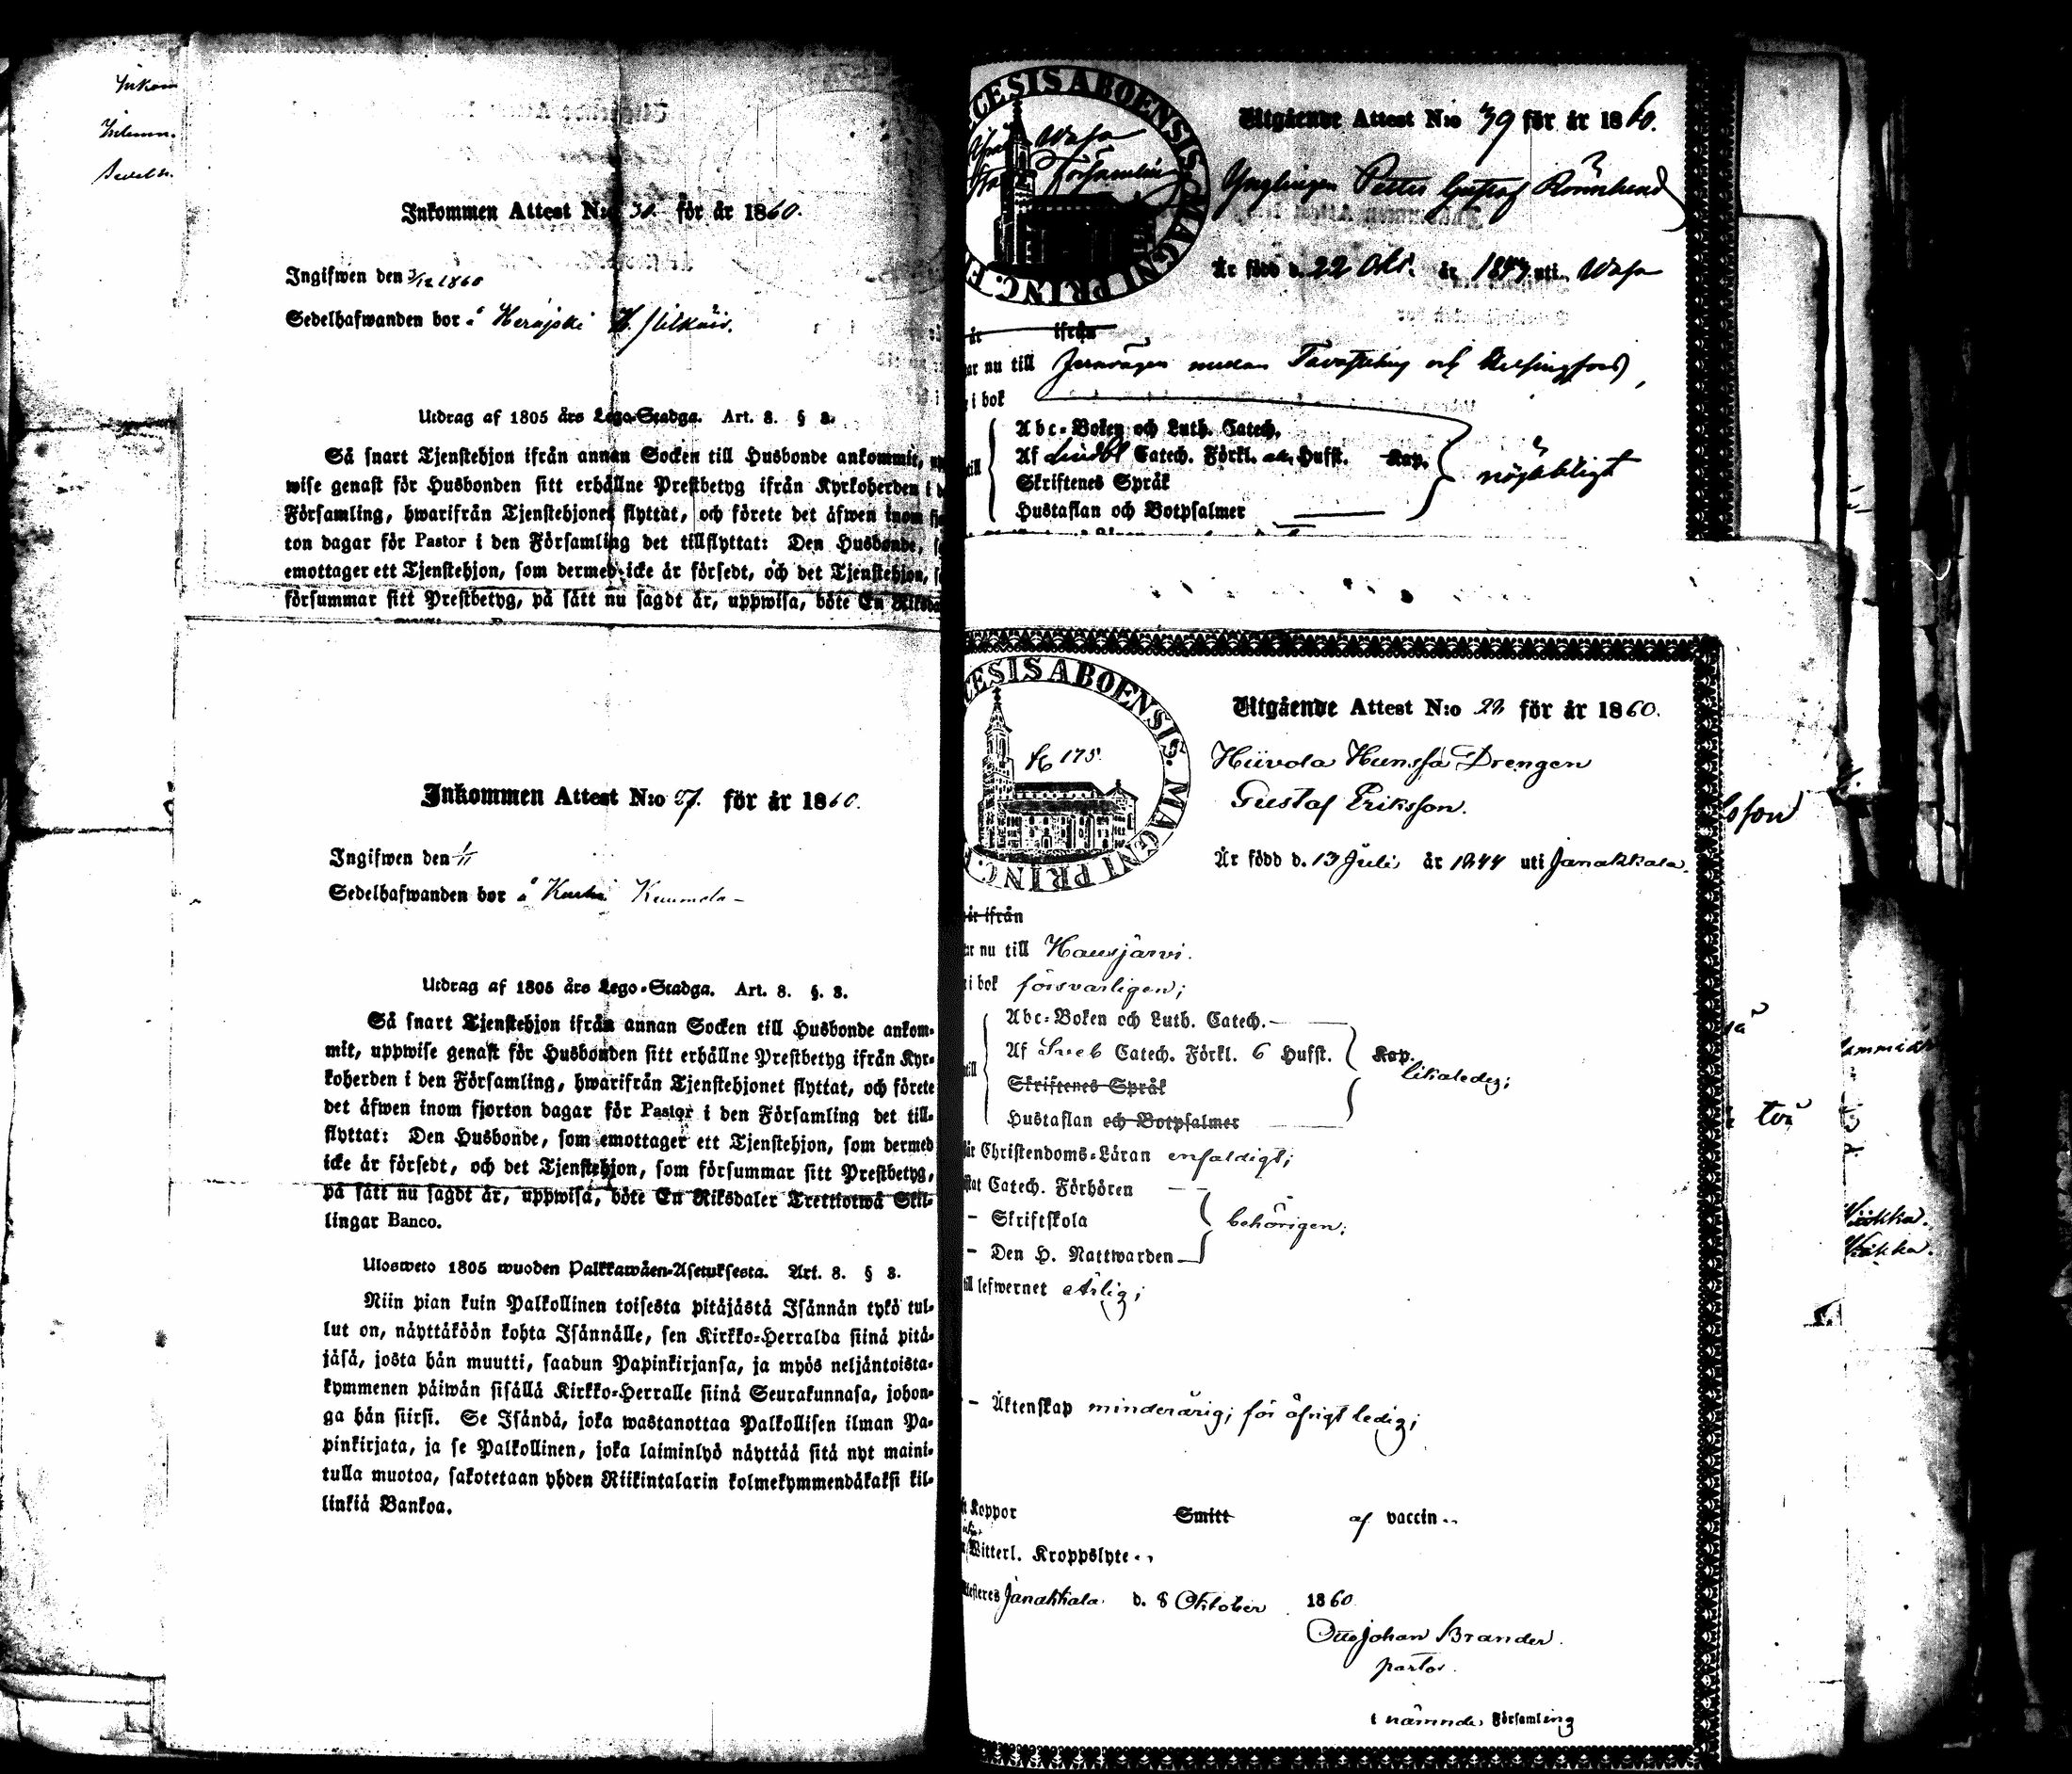 Inkom
Inkommen Attest N:o 30. för år 1860.
Ingifwen den 3/12 1860
Sedelhafwanden bor å Herajoki
Utdrag af 1805 års Lego-Stadga. Art. 8. § 8.
Så snart Tjenstehjon ifrån annan Socken till Husbonde ankommit,
wise genast för Husbonden sitt erhållne Prestbetyg ifrån Kyrkoherden i
Församling, hwarifrån Tjenstehjonet flyttat, och förete det äfwen inom
ton dagar för Pastor i den Församling det tillflyttat: Den Husbonde,
emottager ett Tjenstehjon, som dermed icke är försedt, och det Tjenstehjon,
försummar sitt Prestbetyg, på sätt nu sagdt är, uppwisa, böte En Riksda
Inkommen Attest N:o 27. för år 1860.
Ingifwen den 1/11
Sedelhafwanden bor å
Utdrag af 1805 års Lego-Stadga. Art. 8. §. 8.
Så snart Tjenstehjon ifrån annan Socken till Husbonde ankom-
mit, uppwise genast för Husbonden sitt erhållne Prestbetyg ifrån Kyr-
koherden i den Församling, hwarifrån Tjenstehjonet flyttat, och förete
det äfwen inom fjorton dagar för Pastor i den Församling det till-
flyttat: Den Husbonde, som emottager ett Tjenstehjon, som dermed
icke är försedt, och det Tjenstehjon, som försummar sitt Prestbetyg,
på sätt nu sagdt är, uppwisa, böte En Riksdaler Trettiotwå Skil-
lingar Banco.
Ulosweto 1805 wuoden Palkkawäen-Asetuksesta. Art. 8. § 8.
Niin pian kuin Palkollinen toisesta pitäjästä Isännän tykö tul-
lut on, näyttäköön kohta Isännälle, sen Kirkko-Herralda siinä pitä-
jäsä, josta hän muutti, saadun Papinkirjansa, ja myös neljäntoista-
kymmenen päiwän sisällä Kirkko-Herralle siinä Seurakunnasa, johon-
ga hän siirsi. Se Isändä, joka wastanottaa Palkollisen ilman Pa-
pinkirjata, ja se Palkollinen, joka laiminlyö näyttää sitä nyt maini-
tulla muotoa, sakotetaan yhden Riikintalarin kolmekymmendäkaksi kil-
linkiä Bankoa.
CESIS ABOENSIS. MAGNI PRINC. F
Wasa
Församling
Utgående Attest N:o 39 för år 1860.
Ynglingen Petter Gustaf Rönnlund
Är född d. 22 Okt. år 1843 uti Wasa
är ifrån
ar nu till Jernvägen mellan Tavastehus och Helsingfors,
i bok
till
Abc-Boken och Luth. Catech.
Af Lindbl Catech. Förkl. Husst. Kap.
Skriftenes Språk
Hustaflan och Botpsalmer
nöjaktigt
CESIS ABOENSIS. MAGNI PRINC. F
175.
Utgående Attest N:o 22 för år 1860.
Hiivola Hunsa Drengen
Gustaf Eriksson.
Är född d. 13 Juli år 1844 uti Janakkala.
är ifrån
ar nu till Hausjärvi.
i bok försvarligen;
till
Abc-Boken och Luth. Catech.
Af Sveb Catech. Förkl. 6 Husst. Kap.
likaledes;
Skriftenes Språk
Hustaflan och Botpsalmer
Christendoms-Läran enfaldigt;
Catech. Förhören
- Skriftskola
behörigen;
- Den H. Nattwarden
till lefwernet ärlig;
- Äktenskap minderårig; för öfrigt ledig;
Koppor Smitt af vaccin
Witterl. Kroppslyte
Janakkala. d. 8 Oktober 1860
Otto Johan Brander.
pastor.
i nämnde Församling